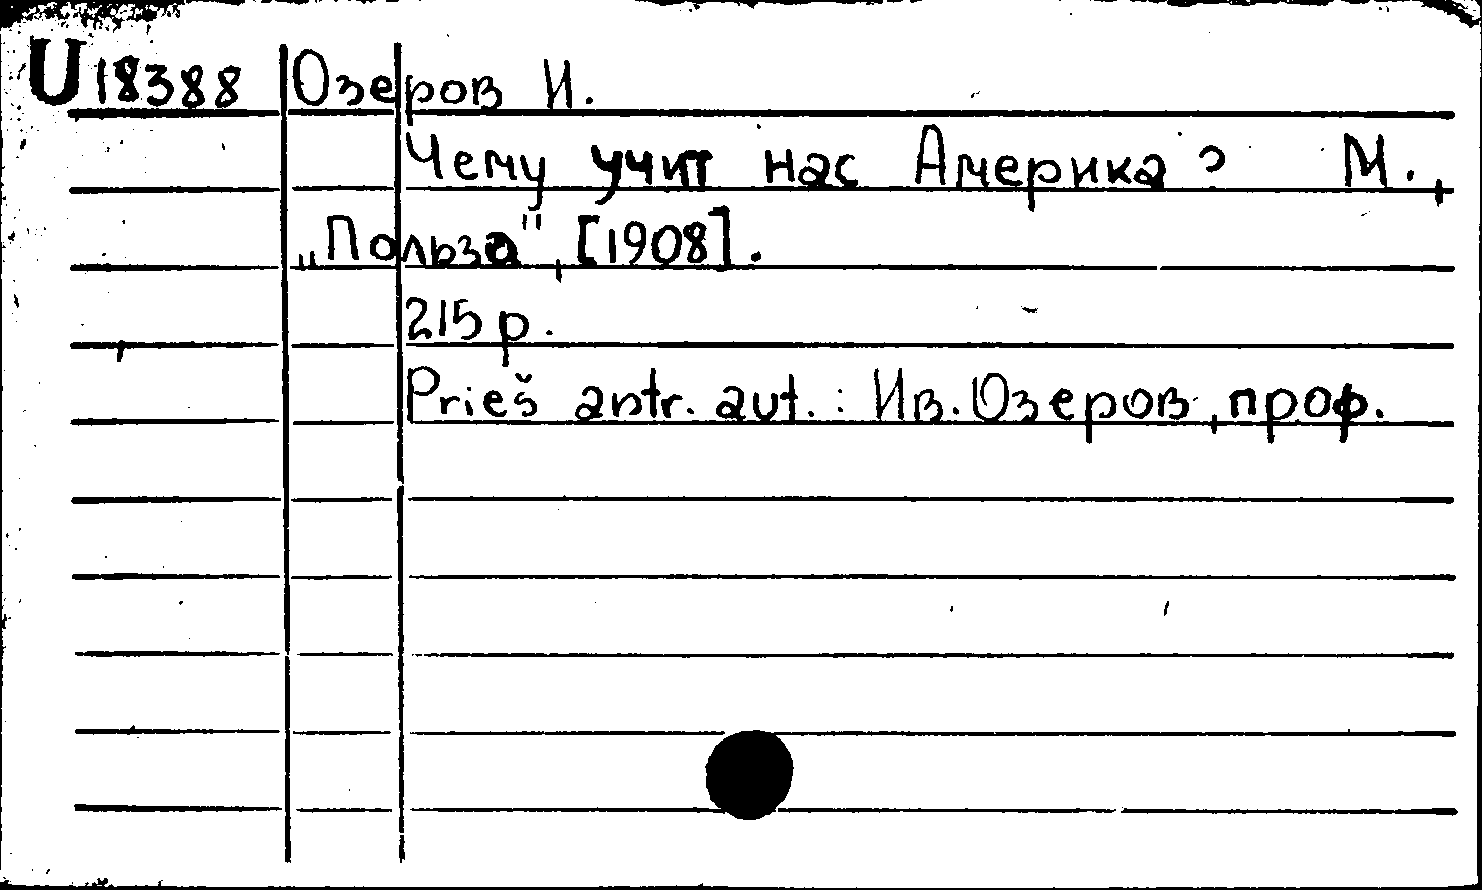 U18388 Озеров И.
Чему учит нас Америка? М.,
„Польза", [1908].
215 p.
Prieš antr. aut.: Ив. Озеров, проф.